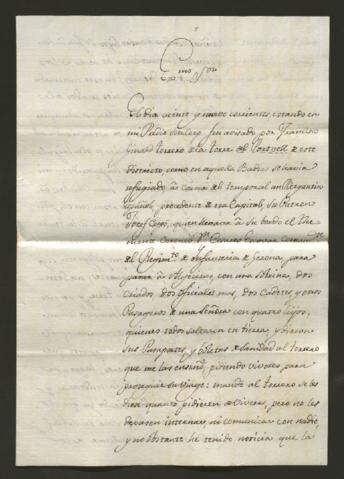 Ex.mo S.or
El dia veinte y nueve corriente, estando en
mi Predio fui avisado por Francisco
Torrero de la Torre de Portvell de este
districto, como en aquella Badia se havia
refugiado à causa del temporal un Bergantin
procedente de esa Capital, su Patron
Josef que llevava à su bordo el The-
niente Coronel D.n
del Regim.to de Infanteria de Gerona, para
pasar à Algeciras, con una sobrina, dos
criados, dos oficiales mas, dos Cadetes, y otros
Pasageros de una señora con quatro hijos,
quienes todos saltaron en tierra, y dieron
sus Pasaportes, y Boletas de Sanidad al torrero
que me las enseñó, pidiendo viveres para
proseguir su viage: mandé al torrero se les
diese quanto pidieren de viveres, pero no les
dexasen internar, ni comunicar con nadie,
y no obstante he tenido noticia que la